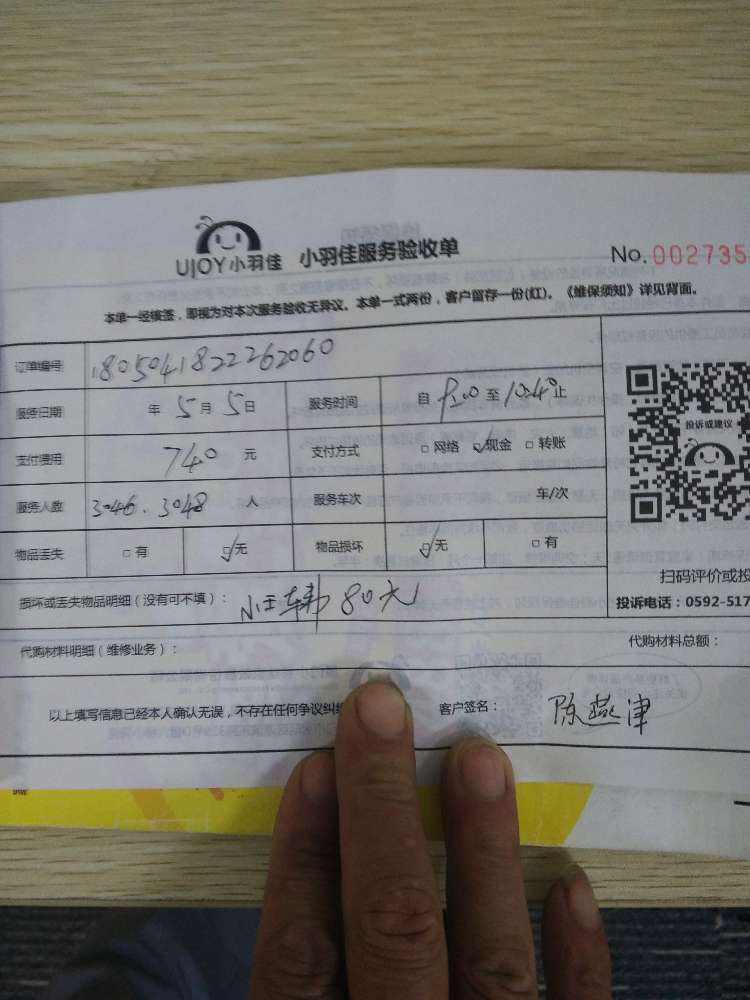 UJOY小羽佳 小羽佳服务验收单
No.002735
本单一经横签，即视为对本次服务验收无异议。本单一式两份，客户留存一份(红)。《维保须知》详见背面。
订单编号 1805041822262060
服务日期 年 5月5日 服务时间 自 8:00 至 10:40 止
支付费用 740 元 支付方式 □网络 ☑现金 □转账
服务人数 3046.3048 人 服务车次 车/次
物品丢失 □有 ☑无 物品损坏 ☑无 □有
投诉或建议
扫码评价或投
投诉电话：0592-517
损坏或丢失物品明细（没有可不填）： 80元
代购材料明细（维修业务）： 代购材料总额：
以上填写信息已经本人确认无误，不存在任何争议纠纷 客户签名： 陈燕津